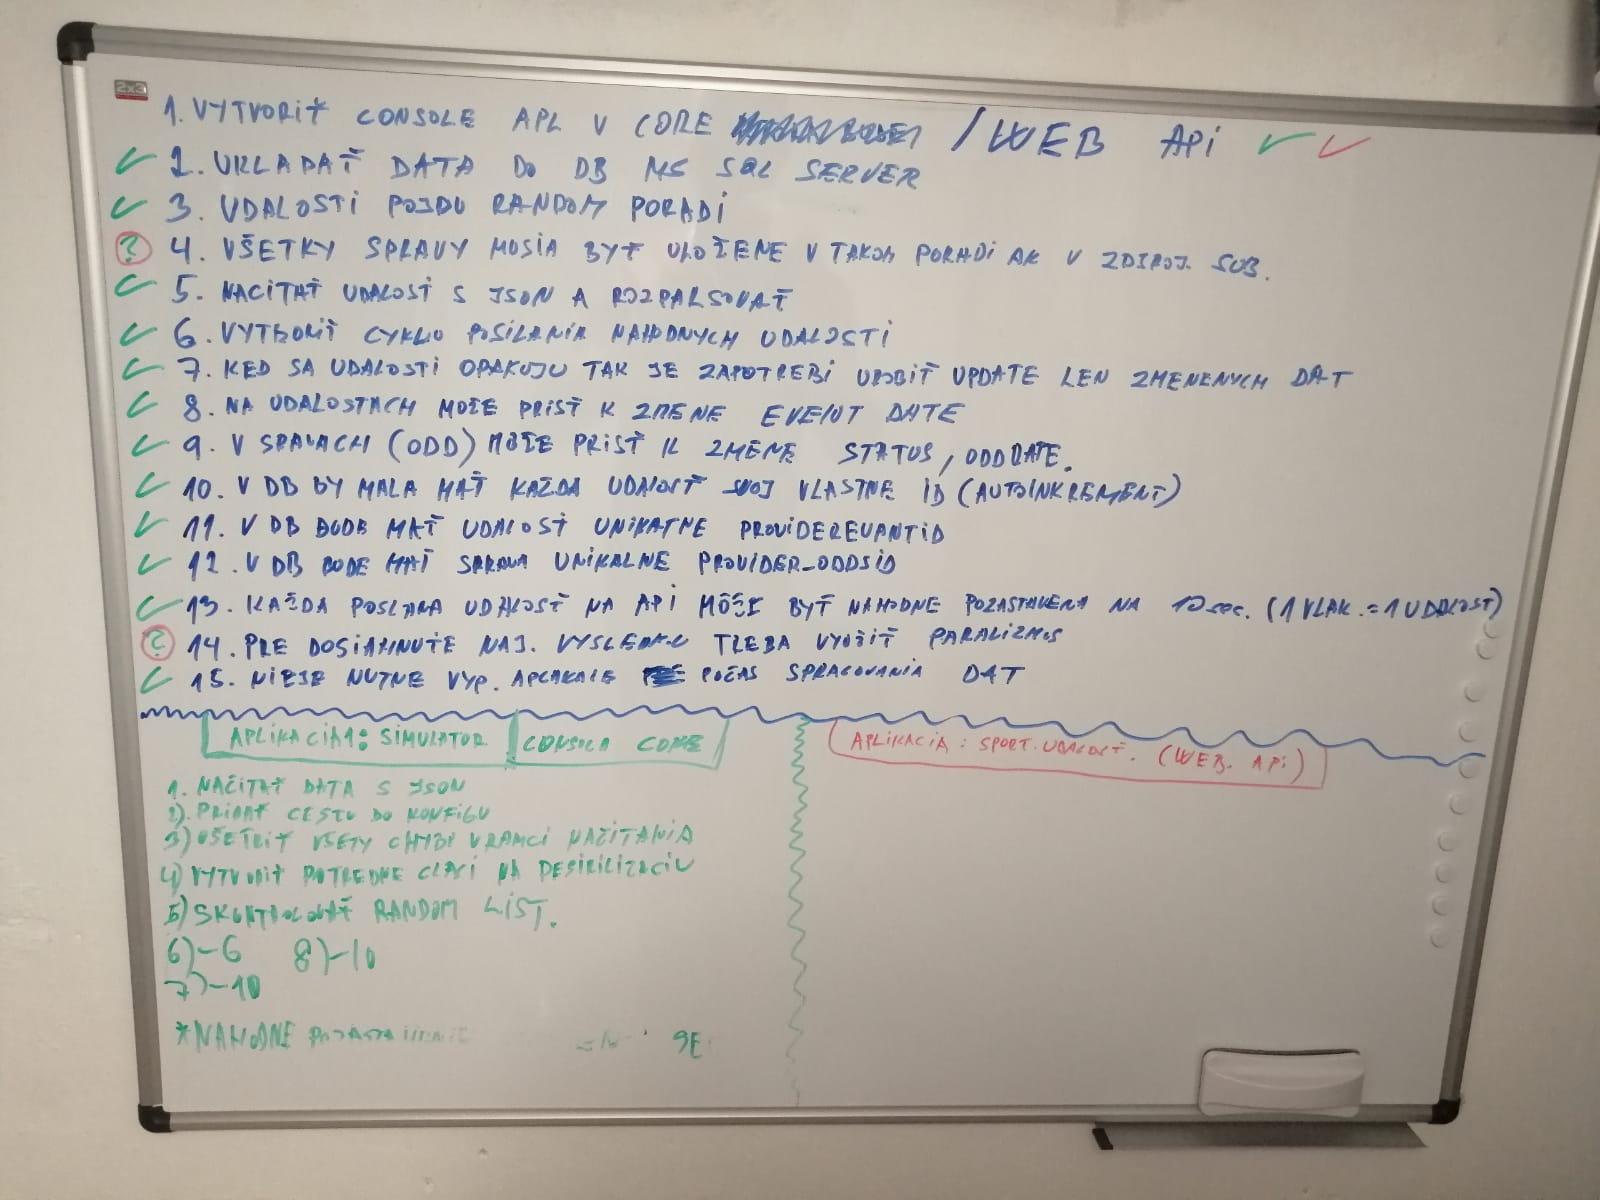 2x3
1. VYTVORIŤ CONSOLE APL V CORE / WEB APi
2. UKLADAŤ DATA DO DB MS SQL SERVER
3. UDALOSTI POJDU RANDOM PORADI
? 4. VŠETKY SPRAVY MUSIA BYŤ ULOŽENE V TAKOM PORADI AK V ZDROJ. SUB.
5. NACITAŤ UDALOSŤ S JSON A ROZPALSOVAŤ
6. VYTVORIŤ CYKLU POSILANIA NAHODNYCH UDALOSTI
7. KED SA UDALOSTI OPAKUJU TAK JE ZAPOTREBI UROBIŤ UPDATE LEN ZMENENYCH DAT
8. NA UDALOSTACH MOŽE PRISŤ K ZMENE EVENT DATE
9. V SPRAVACH (ODD) MOŽE PRISŤ K ZMENE STATUS, ODDRATE.
10. V DB BY MALA MAŤ KAŽDA UDALOSŤ SVOJ VLASTNE ID (AUTOINKREMENT)
11. V DB BUDE MAŤ UDALOSŤ UNIKATNE PROVIDEREVANTID
12. V DB BUDE MAŤ SPRAVA UNIKALNE PROVIDER_ODDSID
13. KAŽDA POSLANA UDALOSŤ NA API MÔŽE BYŤ NAHODNE POZASTAVENA NA 10 sec. (1 VLAK. = 1 UDALOSŤ)
? 14. PRE DOSIAHNUTE NAJ. VYSLEDKU TREBA VYUŽIŤ PARALIZMUS
15. NIEJE NUTNE VYP. APLAKACIE POČAS SPRACOVANIA DAT
APLIKACIA1: SIMULATOR CONSOLA CORE
1. NAČITAŤ DATA S JSON
2). PRIDAŤ CESTU DO KONFIGU
3) OŠETRIŤ VŠETY CHYBY VRAMCI NAČITANIA
4) VYTVORIŤ POTREBNE CLASI NA DESIRILIZACIU
5) SKONTROLOVAŤ RANDOM LIST.
6) - 6 8) - 10
7) - 10
*NAHODNE
APLIKACIA: SPORT. UDALOSŤ. (WEB. APi)